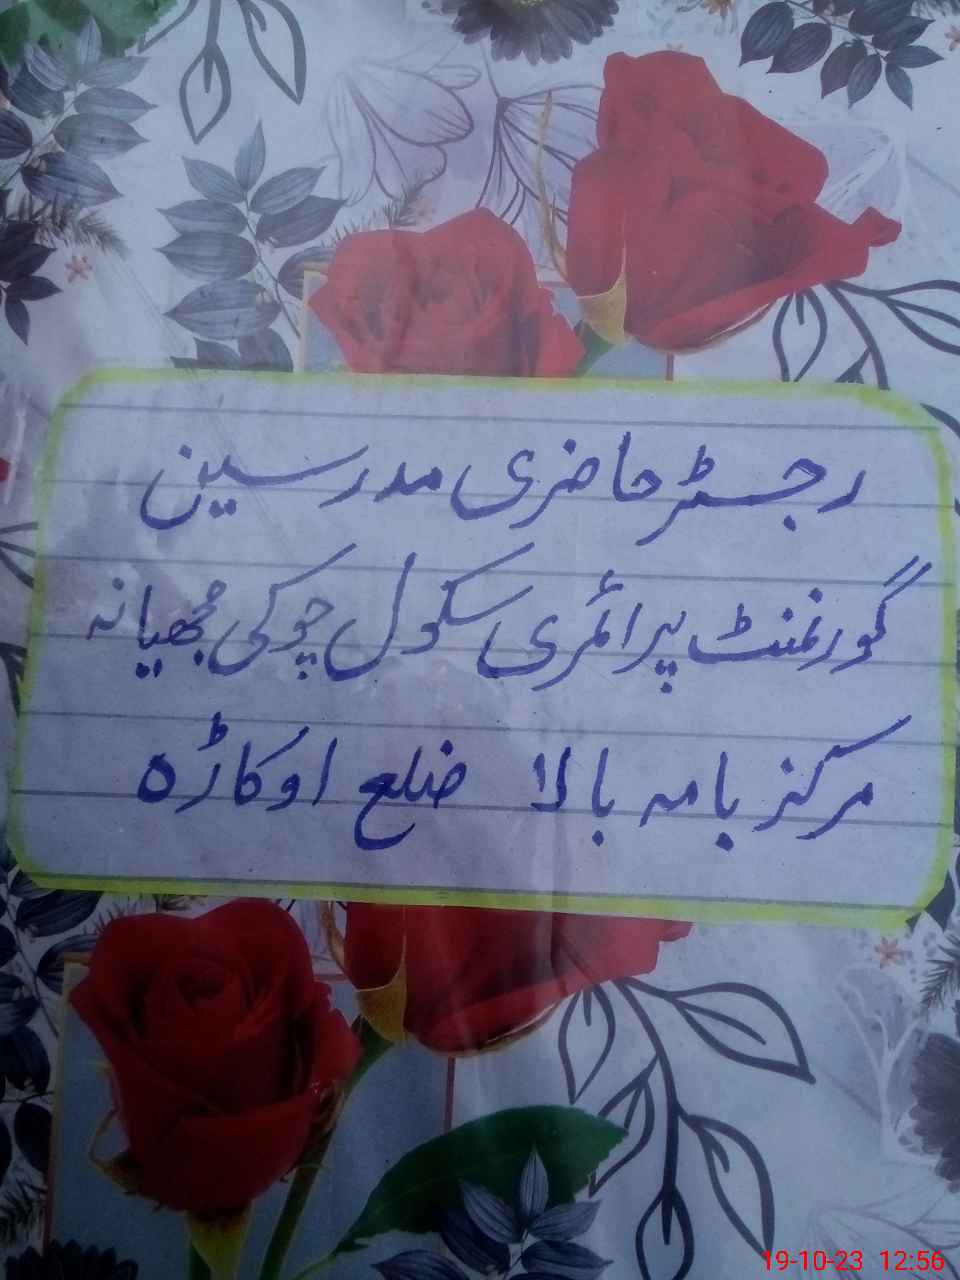 رجسٹر حاضری مدرسین
گورنمنٹ پرائمری سکول چوکی مجھیانہ
مرکز بامہ بالا ضلع اوکاڑہ
19-10-23 12:56